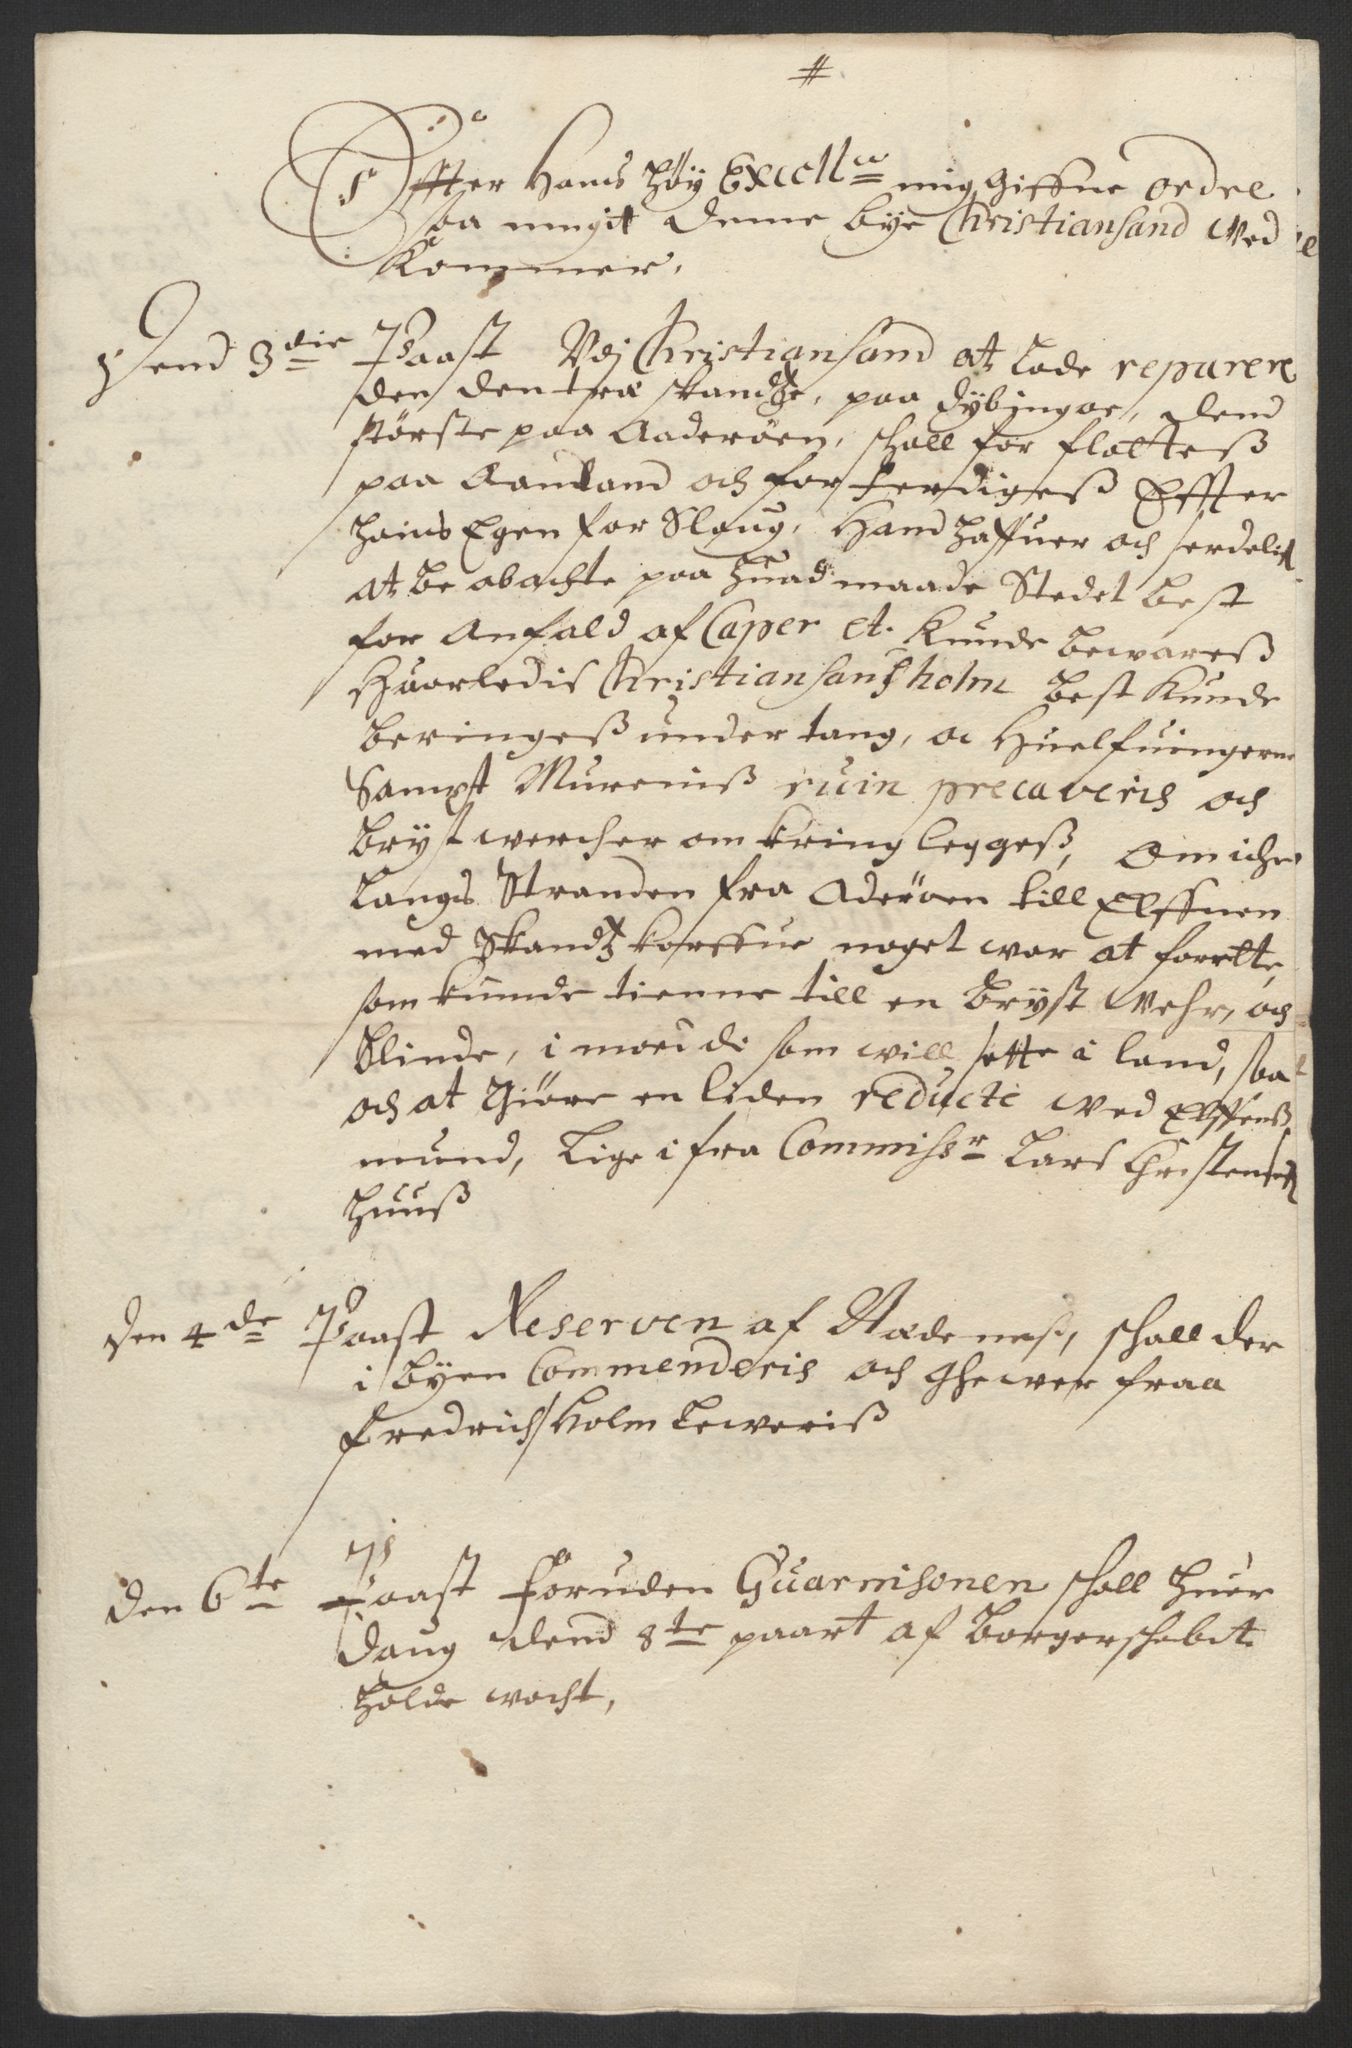 #
Effter Hans Høy Excell^ce mig giffne ordre
saa megit denne bye Christiansand Ved
kommer,
Dend 3^die Paast Vdj Christiansand at lade reparere
den den træ skandtze, paa Dÿbingøe, dend
største paa Aaderøen, schall for flötteß
paa Aamland och forferdigeß Effter
hans Egen for Slaug, Hand haffuer och serdelist
at be obachte paa huad maade Stedet best
for Anfald af Caper et. kunde bewareß
Huorledis Christiansandsholm best kunde
beringeß under tang, oc Huelfuingerne
Sampt Mureniß ruin precaveris och
bryst wercher om kring leggeß, Om iche
langs Stranden fra Oderöen till Elffuen
med Skandtzkorffue noget war at forrette,
som kunde tienne till en Brÿst Wehr, och
blinde, i mod di som will sette i land, saa
och at Giöre en liden reducte wed Elffenß
mund, lige i fra Commiss^r Lars Christensen
huuß
Den 4^de Paast Reserven af Nædeneß, schall der
i byen Commenderis och Ghewer fraa
Fredrichsholm leweriß
Den 6^te Paast foruden Guarnisonen schall huer
daug dend 8^te paart af borgerschabet
holde wacht,